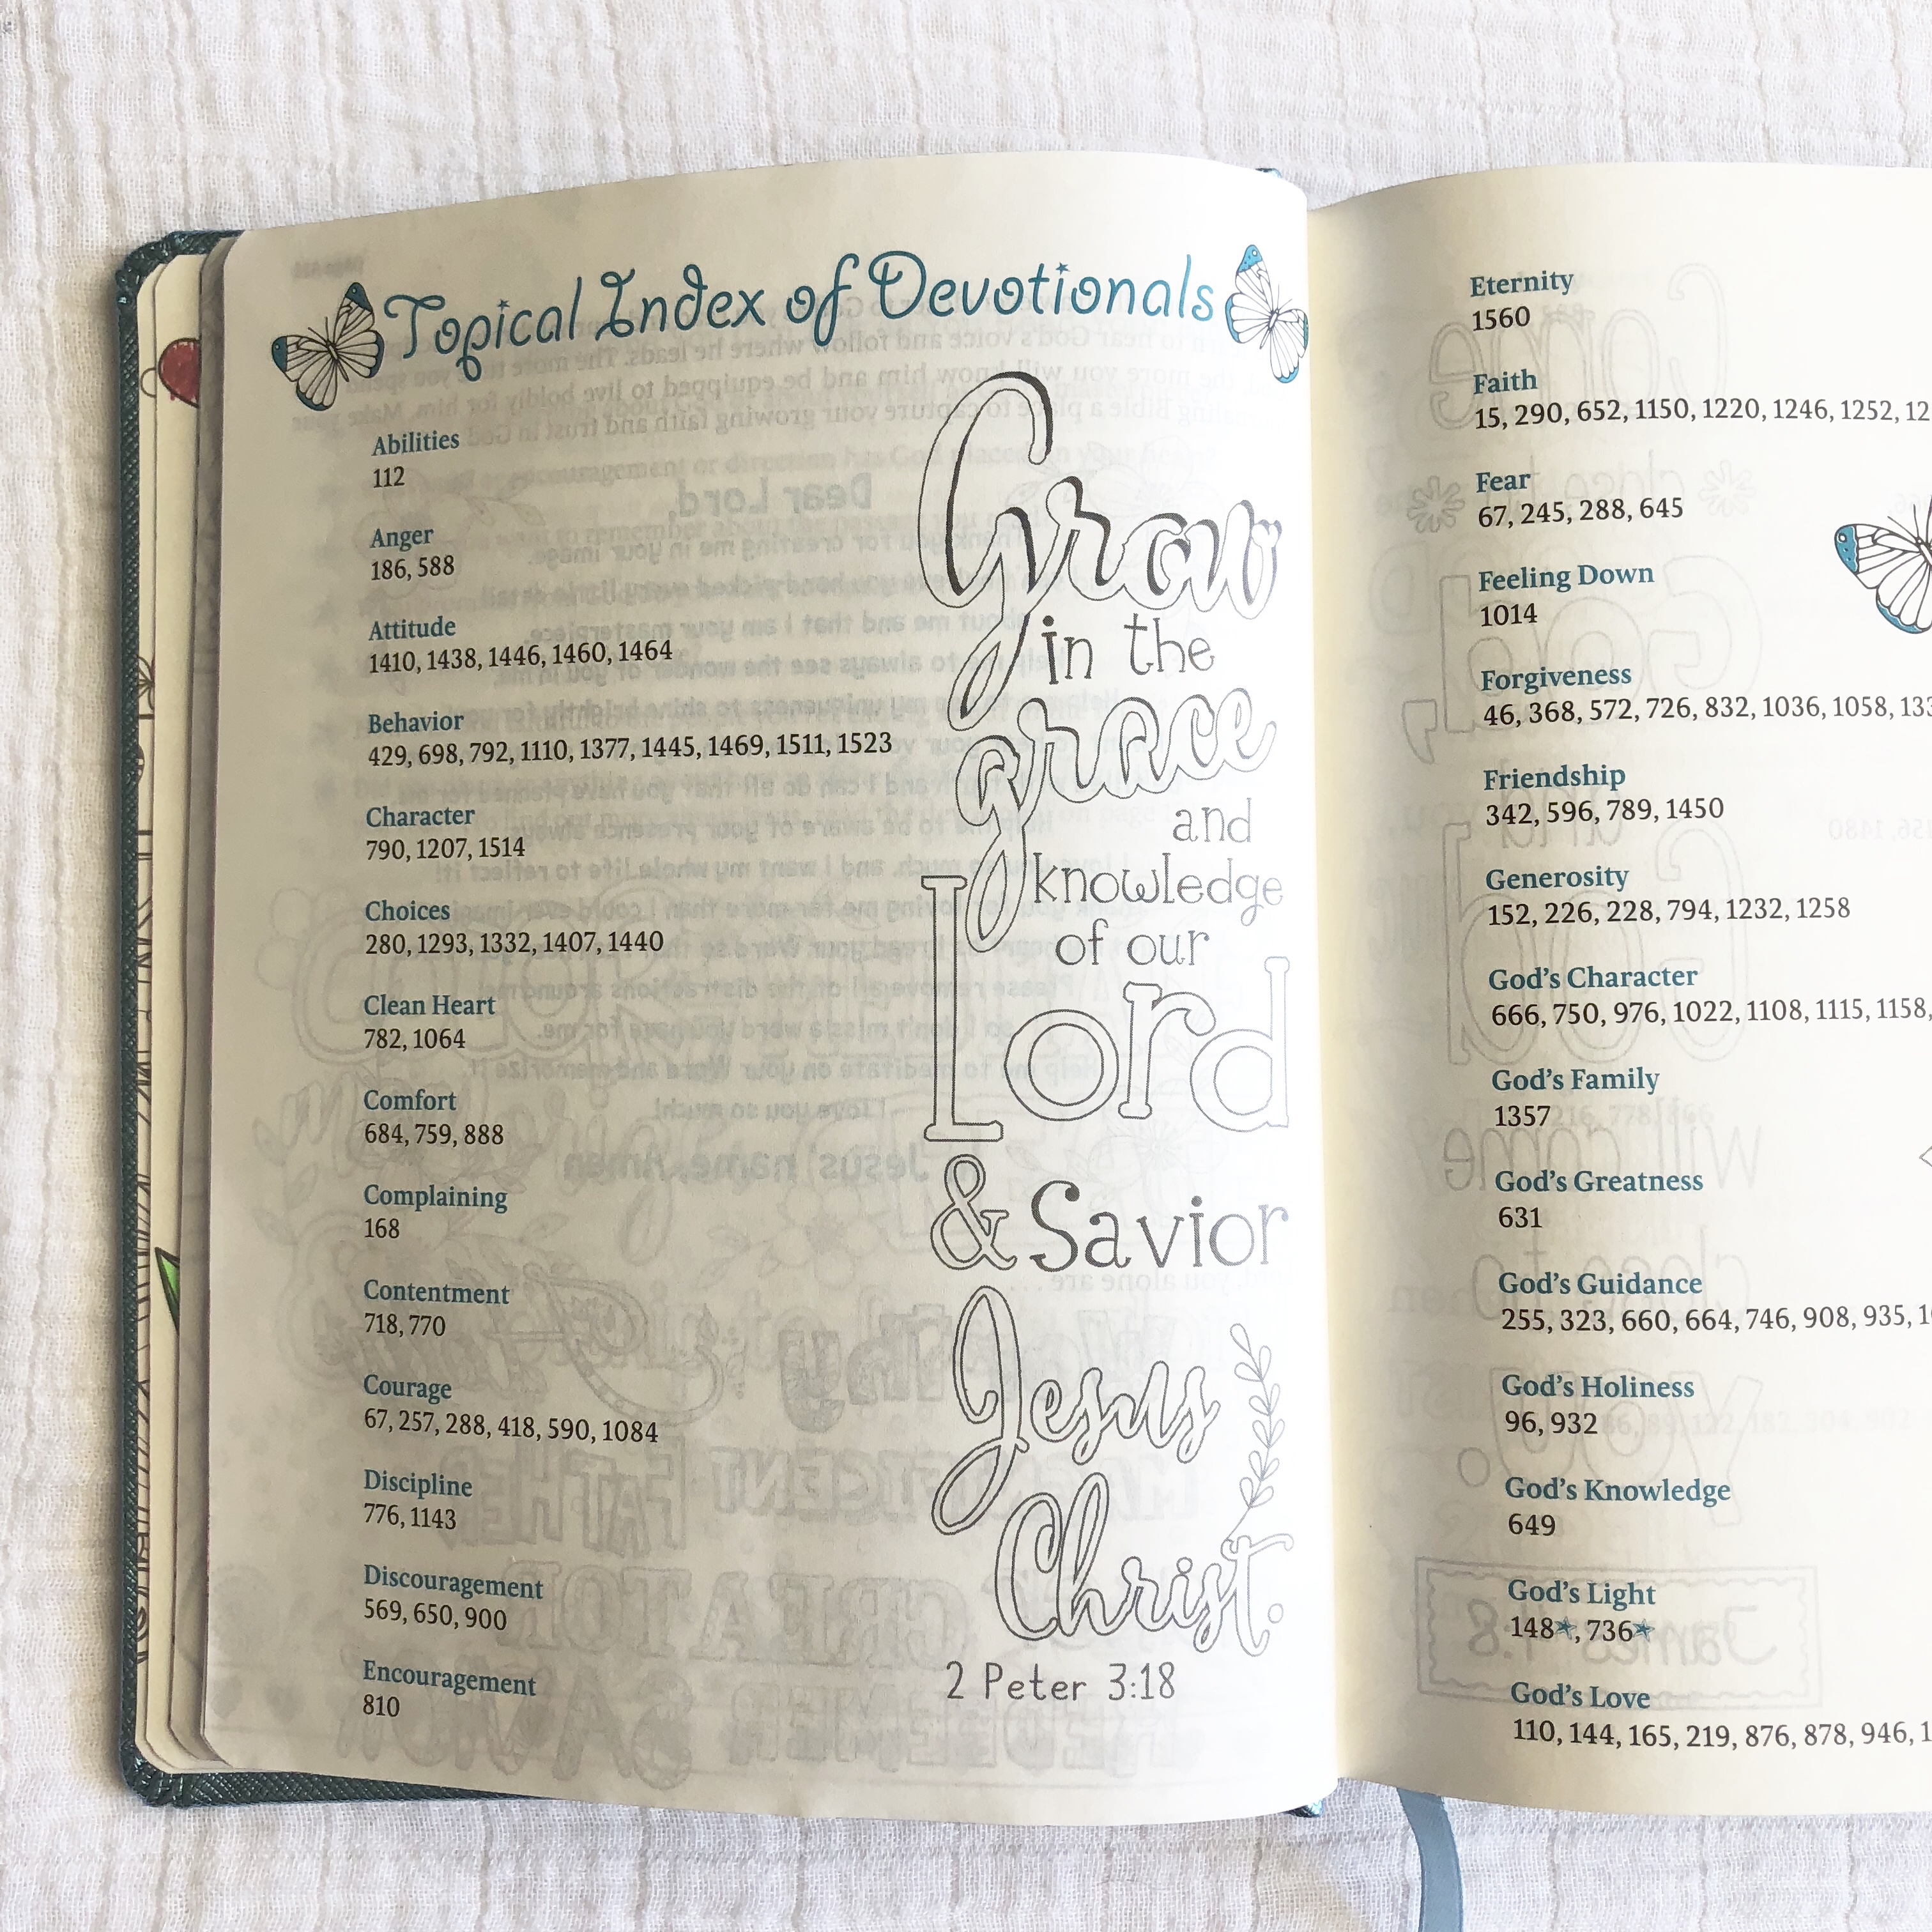 Topical Index of Devotionals
Abilities
112
Anger
186, 588
Attitude
1410, 1438, 1446, 1460, 1464
Behavior
429, 698, 792, 1110, 1377, 1445, 1469, 1511, 1523
Character
790, 1207, 1514
Choices
280, 1293, 1332, 1407, 1440
Clean Heart
782, 1064
Comfort
684, 759, 888
Complaining
168
Contentment
718, 770
Courage
67, 257, 288, 418, 590, 1084
Discipline
776, 1143
Discouragement
569, 650, 900
Encouragement
810
Grow
in the
grace
and
knowledge
of our
Lord
& Savior
Jesus
Christ.
2 Peter 3:18
Eternity
1560
Faith
15, 290, 652, 1150, 1220, 1246, 1252,
Fear
67, 245, 288, 645
Feeling Down
1014
Forgiveness
46, 368, 572, 726, 832, 1036, 1058,
Friendship
342, 596, 789, 1450
Generosity
152, 226, 228, 794, 1232, 1258
God's Character
666, 750, 976, 1022, 1108, 1115, 1158,
God's Family
1357
God's Greatness
631
God's Guidance
255, 323, 660, 664, 746, 908, 935,
God's Holiness
96, 932
God's Knowledge
649
God's Light
148★, 736★
God's Love
110, 144, 165, 219, 876, 878, 946,